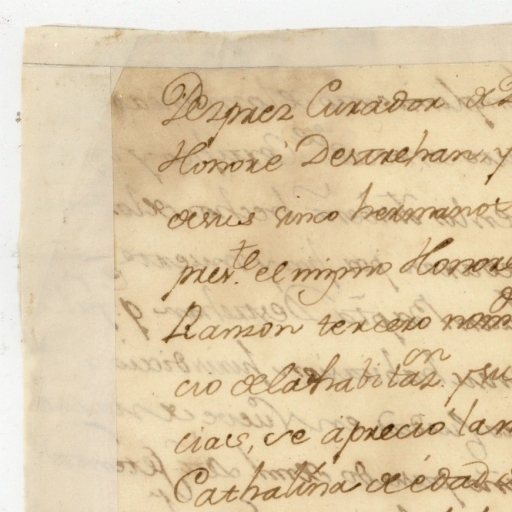 Desprez Curador de
Honoré Destrehan y
de sus sinco hermanos
pres.te el mismo Honoré
Ranson tercero nom
cio de la habitaz.on y su
cias, se aprecio la
Cathalina de edad